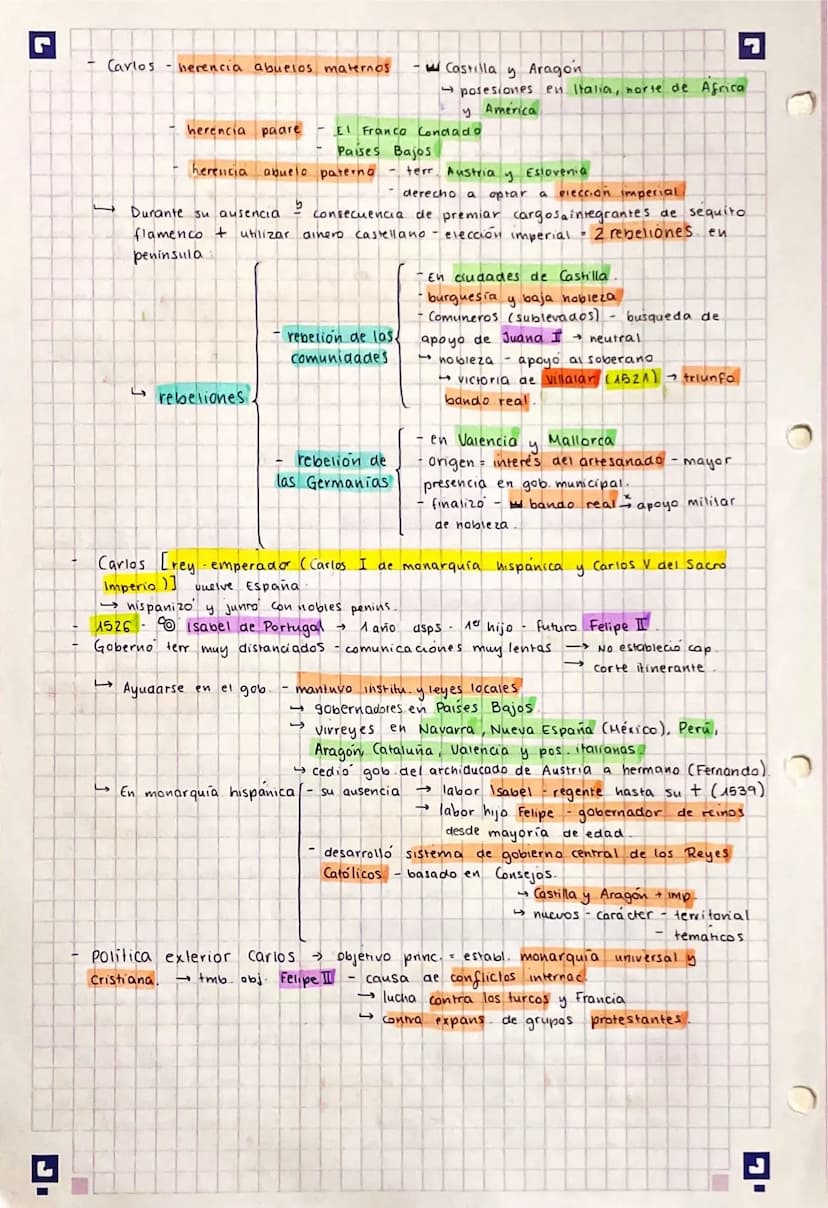 - Carlos - herencia abuelos maternos - 👑 Castilla y Aragón
↳ posesiones en Italia, norte de África
y América
- herencia padre - El Franco Condado
- Países Bajos
- herencia abuelo paterno - terr. Austria y Eslovenia
- derecho a optar a elección imperial
↳ Durante su ausencia y consecuencia de premiar cargos a integrantes de séquito
flamenco + utilizar dinero castellano - elección imperial = 2 rebeliones en
península:
↳ rebeliones
- rebelión de las
comunidades
- En ciudades de Castilla.
- burguesía y baja nobleza
- Comuneros (sublevados) - busqueda de
apoyo de Juana I → neutral
↳ nobleza - apoyó al soberano
↳ victoria de Villalar (1521) → triunfo
bando real.
- rebelión de
las Germanías
- en Valencia y Mallorca
- origen = interés del artesanado - mayor
presencia en gob. municipal.
- finalizó - 👑 bando real x→ apoyo militar
de nobleza.
- Carlos [rey-emperador (Carlos I de monarquía hispánica y Carlos V del Sacro
Imperio)] vuelve España.
→ hispanizó y juntó con nobles penins.
- 1526 - ⚭ Isabel de Portugal → 1 año dsps - 1er hijo - futuro Felipe II.
- Gobernó terr muy distanciados - comunicaciones muy lentas → No estableció cap.
→ corte itinerante.
↳ Ayudarse en el gob. - mantuvo institu. y leyes locales
↳ gobernadores en Países Bajos.
↳ virreyes en Navarra, Nueva España (México), Perú,
Aragón Cataluña, Valencia y pos. italianas.
↳ cedió gob. del archiducado de Austria a hermano (Fernando)
↳ En monarquía hispánica - su ausencia → labor Isabel - regente hasta su + (1539)
→ labor hijo Felipe - gobernador de reinos
desde mayoría de edad.
- desarrolló sistema de gobierno central de los Reyes
Católicos - basado en Consejos.
↳ Castilla y Aragón + imp.
↳ nuevos - carácter - territorial
- temáticos
- Política exterior Carlos → objetivo princ. = establ. monarquía universal y
Cristiana. → tmb. obj. Felipe II - causa de conflictos internac.
→ lucha contra los turcos y Francia
↳ contra expans. de grupos protestantes.